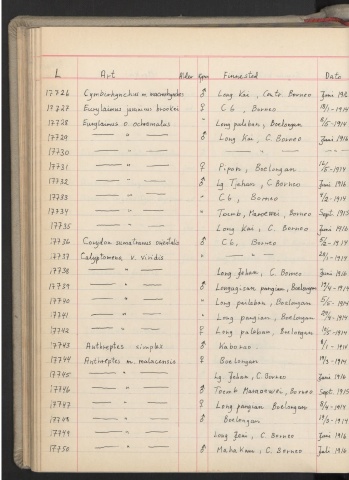 L Art Alder Kjønn Finnested Dato
17726 Cymbirhynchus m. macrorhynchos ♂ Long Kai, Centr. Borneo Juni 1916
17727 Eurylaimus javanicus brookei ♀ C 6, Borneo 19/1-1914
17728 Eurylaimus o. ochromalus " Long paleban, Boelongan 5/5-1914
17729 — " — ♂ Long Kai, C. Borneo Juni 1916
17730 — " — — " —
17731 — " — ♀ Pipan, Boelongan 12/5-1914
17732 — " — ♂ Lg Tjehan, C. Borneo Juni 1916
17733 — " — " C 6, Borneo 4/2-1914
17734 — " — " Toemb. Maroewei, Borneo Sept. 1915
17735 — " — Long Kai, C. Borneo Juni 1916
17736 Corydon sumatranus orientalis ♂ C 6, Borneo 5/2-1914
17737 Calyptomena v. viridis " — " — 29/1-1914
17738 — " — Long Jehan, C. Borneo Juni 1916
17739 — " — ♂ pangian, Boelongan 19/4-1914
17740 — " — " Long paleban, Boelongan 5/6-1914
17741 — " — " Long pangian, Boelongan 29/4-1914
17742 — " — ♀ Long paleban, Boelongan
17743 Anthreptes simplex ♂ Kaboran 8/1-1914
17744 Anthreptes m. malacensis ♀ Boelongan 19/3-1914
17745 — " — Lg Jehan, C. Borneo Juni 1916
17746 — " — ♂ Toemb Maroewei, Borneo Sept. 1915
17747 — " — ♀ Long pangian Boelongan 8/4-1914
17748 — " — ♂ Boelongan 19/3-1914
17749 — " — Long C. Borneo Juni 1916
17750 — " — ♂ Mahakam, C. Borneo Juli 1916